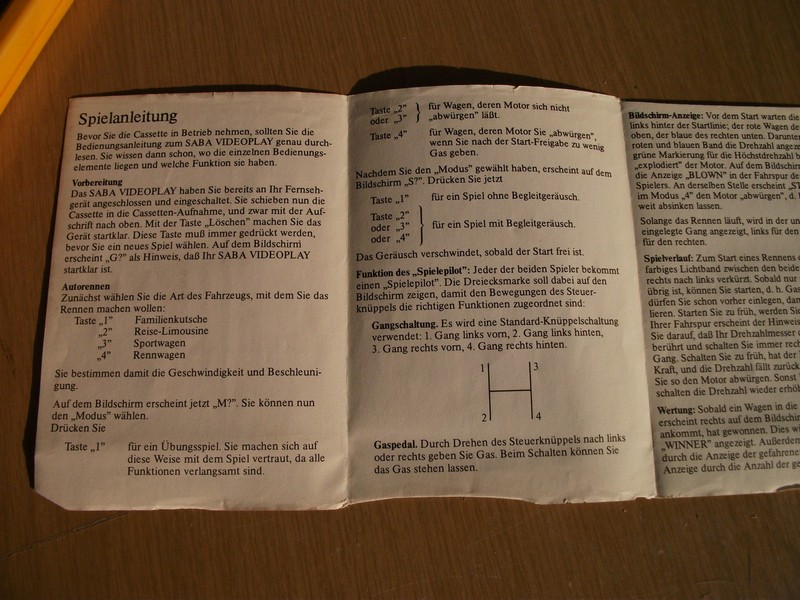 Spielanleitung
Bevor Sie die Cassette in Betrieb nehmen, sollten Sie die
Bedienungsanleitung zum SABA VIDEOPLAY genau durch-
lesen. Sie wissen dann schon, wo die einzelnen Bedienungs-
elemente liegen und welche Funktion sie haben.
Vorbereitung
Das SABA VIDEOPLAY haben Sie bereits an Ihr Fernseh-
gerät angeschlossen und eingeschaltet. Sie schieben nun die
Cassette in die Cassetten-Aufnahme, und zwar mit der Auf-
schrift nach oben. Mit der Taste „Löschen” machen Sie das
Gerät startklar. Diese Taste muß immer gedrückt werden,
bevor Sie ein neues Spiel wählen. Auf dem Bildschirm
erscheint „G?” als Hinweis, daß Ihr SABA VIDEOPLAY
startklar ist.
Autorennen
Zunächst wählen Sie die Art des Fahrzeugs, mit dem Sie das
Rennen machen wollen:
Taste „1” Familienkutsche
„2” Reise-Limousine
„3” Sportwagen
„4” Rennwagen
Sie bestimmen damit die Geschwindigkeit und Beschleuni-
gung.
Auf dem Bildschirm erscheint jetzt „M?”. Sie können nun
den „Modus” wählen.
Drücken Sie
Taste „1” für ein Übungsspiel. Sie machen sich auf
diese Weise mit dem Spiel vertraut, da alle
Funktionen verlangsamt sind.
Taste „2” für Wagen, deren Motor sich nicht
oder „3” „abwürgen” läßt.
Taste „4” für Wagen, deren Motor Sie „abwürgen”,
wenn Sie nach der Start-Freigabe zu wenig
Gas geben.
Nachdem Sie den „Modus” gewählt haben, erscheint auf dem
Bildschirm „S?”. Drücken Sie jetzt
Taste „1” für ein Spiel ohne Begleitgeräusch.
Taste „2”
oder „3” für ein Spiel mit Begleitgeräusch.
oder „4”
Das Geräusch verschwindet, sobald der Start frei ist.
Funktion des „Spielepilot”: Jeder der beiden Spieler bekommt
einen „Spielepilot”. Die Dreiecksmarke soll dabei auf den
Bildschirm zeigen, damit den Bewegungen des Steuer-
knüppels die richtigen Funktionen zugeordnet sind:
Gangschaltung. Es wird eine Standard-Knüppelschaltung
verwendet: 1. Gang links vorn, 2. Gang links hinten,
3. Gang rechts vorn, 4. Gang rechts hinten.
1 3
2 4
Gaspedal. Durch Drehen des Steuerknüppels nach links
oder rechts geben Sie Gas. Beim Schalten können Sie
das Gas stehen lassen.
Bildschirm-Anzeige: Vor dem Start warten die
links hinter der Startlinie; der rote Wagen de
oben, der blaue des rechten unten. Darunter
roten und blauen Band die Drehzahl angeze
grüne Markierung für die Höchstdrehzahl b
„explodiert” der Motor. Auf dem Bildschirm
die Anzeige „BLOWN” in der Fahrspur de
Spielers. An derselben Stelle erscheint „ST
im Modus „4” den Motor „abwürgen”, d.
weit absinken lassen.
Solange das Rennen läuft, wird in der un
eingelegte Gang angezeigt, links für den
für den rechten.
Spielverlauf: Zum Start eines Rennens
farbiges Lichtband zwischen den beide
rechts nach links verkürzt. Sobald nur
übrig ist, können Sie starten, d. h. Gas
dürfen Sie schon vorher einlegen, dam
lieren. Starten Sie zu früh, werden Sie
Ihrer Fahrspur erscheint der Hinweis
Sie darauf, daß Ihr Drehzahlmesser
berührt und schalten Sie immer rech
Gang. Schalten Sie zu früh, hat der
Kraft, und die Drehzahl fällt zurück
Sie so den Motor abwürgen. Sonst
schalten die Drehzahl wieder erhöh
Wertung: Sobald ein Wagen in die
erscheint rechts auf dem Bildschirm
ankommt, hat gewonnen. Dies wi
„WINNER” angezeigt. Außerdem
durch die Anzeige der gefahrene
Anzeige durch die Anzahl der ge